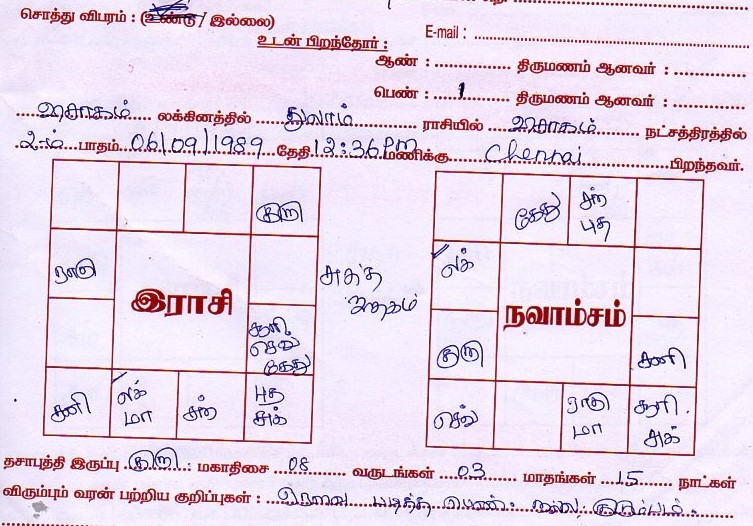 சொத்து விபரம் : (உண்டு / இல்லை)
உடன் பிறந்தோர் : E-mail :
ஆண் : திருமணம் ஆனவர் :
பெண் : 1 திருமணம் ஆனவர் :
விசாகம் லக்கினத்தில் துலாம் ராசியில் விசாகம் நட்சத்திரத்தில்
2-ம் பாதம் 06/09/1989 தேதி 12:36 PM மணிக்கு Chennai பிறந்தவர்.
குரு
கேது சந் புத
ராகு
லக்
இராசி
நவாம்சம்
சூரி செவ் கேது
குரு
சனி
சனி லக் மா சந் புத சுக்
செவ் ராகு மா சூரி சுக்
தசாபுத்தி இருப்பு குரு மகாதிசை 08 வருடங்கள் 03 மாதங்கள் 15 நாட்கள்
விரும்பும் வரன் பற்றிய குறிப்புகள் : படித்த பெண். நல்ல குடும்பம்.